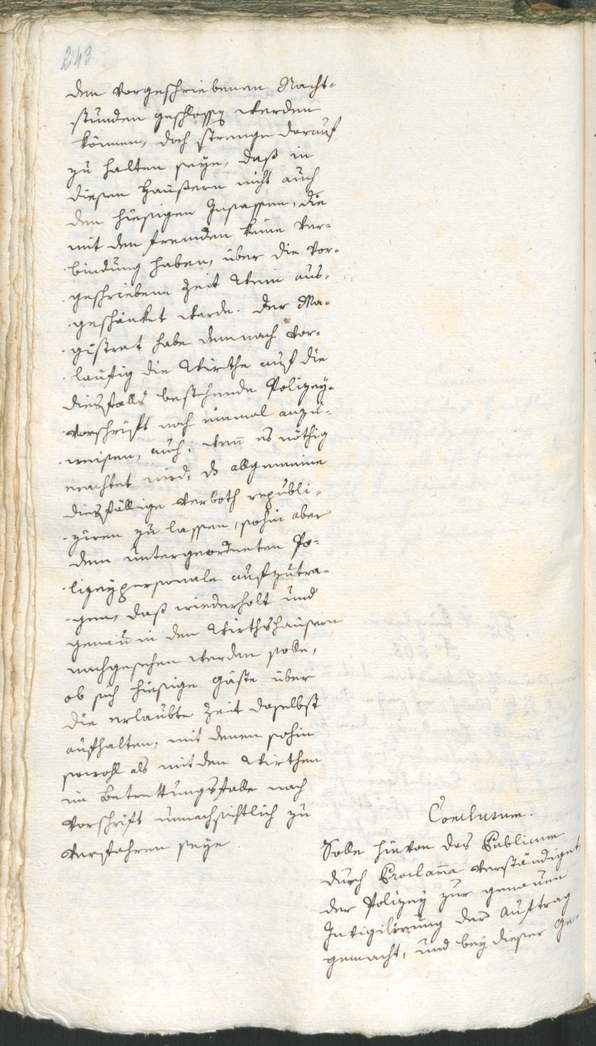 243
den vorgeschriebenen Nacht-
stunden geschlossen werden
können, doch strenge darauf
zu halten seye, daß in
diesen Häußern nicht auch
den hiesigen Insassen, die
mit den fremden keine Ver-
bindung haben, über die vor-
geschriebene Zeit Wein aus-
geschänket werde. Der Ma-
gistrat habe demnach vor-
läufig die Wirthe auf die
diesfalls bestehende Polizey-
vorschrift noch einmal anzu-
weisen, auch, wenn es nöthig
erachtet wird, das allgemeine
diesfällige Verboth republi-
ziren zu lassen, sohin aber
dem untergeordneten Po-
lizeypersonale aufzutra-
gen, daß wiederholt und
genau in den Wirthshäusern
nachgesehen werden solle,
ob sich hiesige Gäste über
die erlaubte Zeit daselbst
aufhalten, mit denen sohin
sowohl als mit den Wirthen
im Betrettungsfalle nach
Vorschrift unnachsichtlich zu
verfahren seye.
Conclusum.
Solle hievon das Publicum
durch Proclama verständiget
der Polizey zur genauen
Invigilirung der Auftrag
gemacht, und bey dieser Ge-